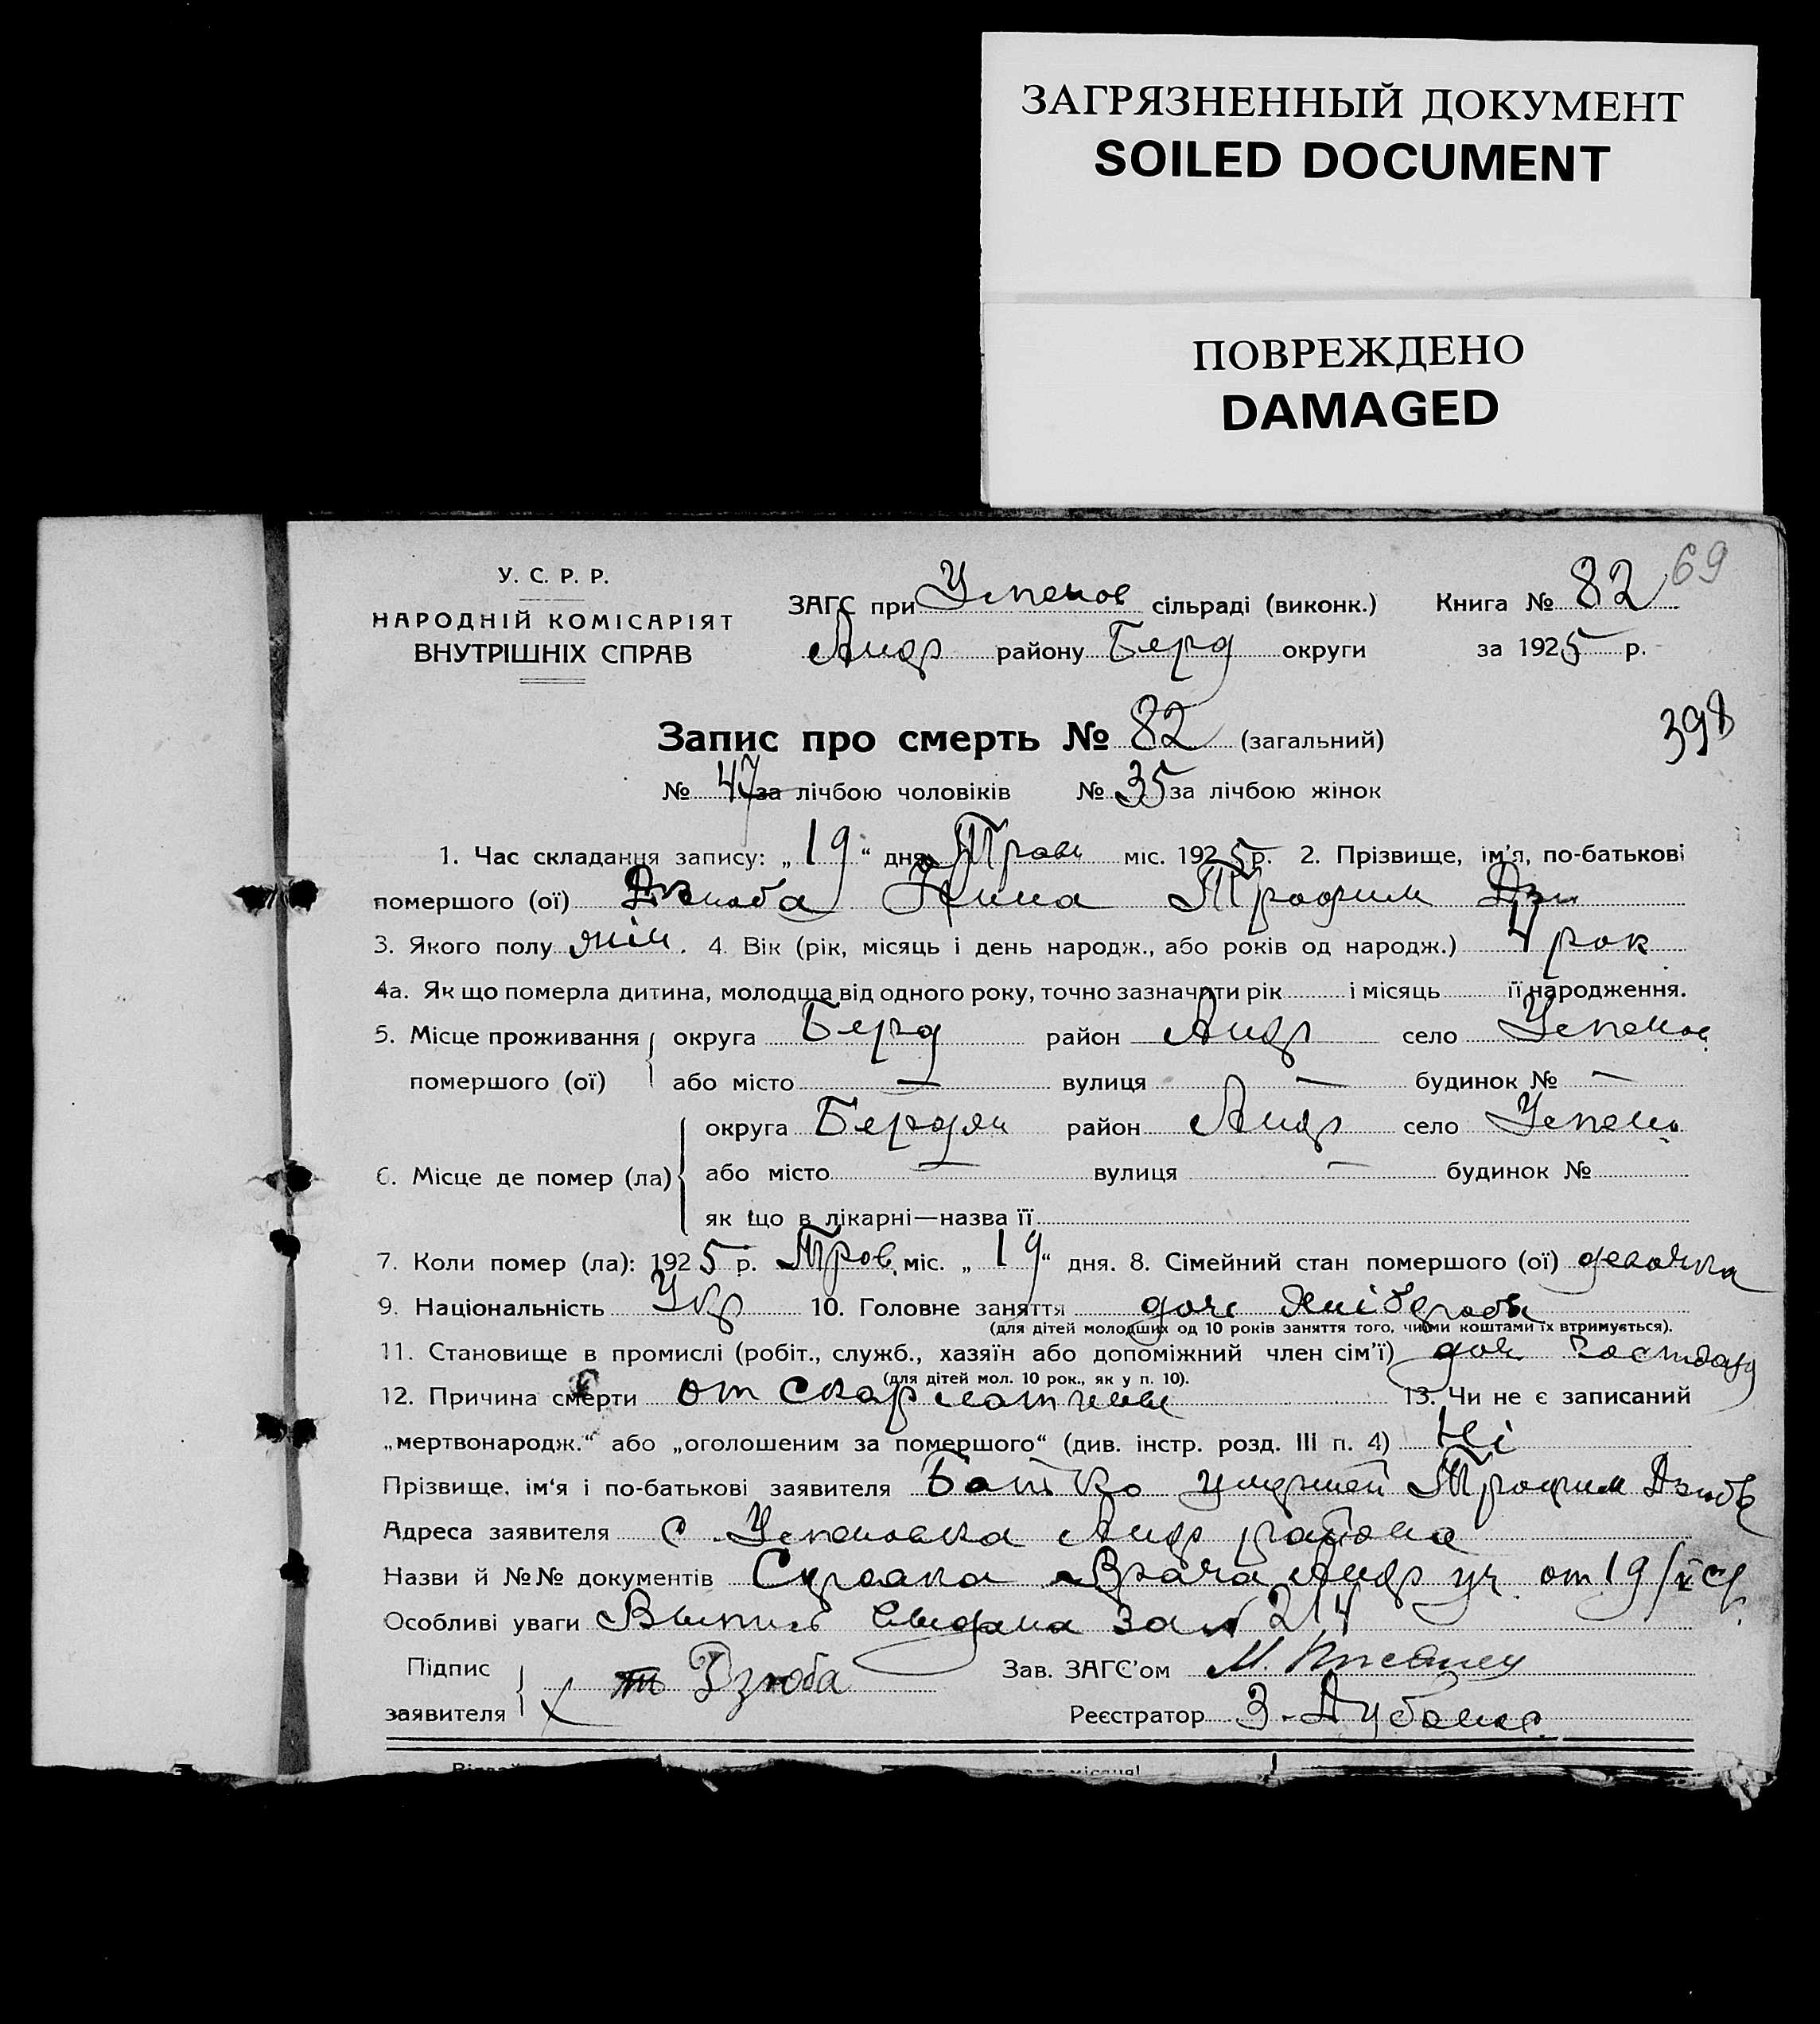 ЗАГРЯЗНЕННЫЙ ДОКУМЕНТ
SOILED DOCUMENT
ПОВРЕЖДЕНО
DAMAGED
69
У. С. Р. Р.
НАРОДНІЙ КОМІСАРІЯТ
ВНУТРІШНІХ СПРАВ
ЗАГС при Успенов сільраді (виконк.) Книга № 82
Андр району Берд округи за 1925 р.
398
Запис про смерть № 82 (загальний)
№ 47 за лічбою чоловіків № 35 за лічбою жінок
1. Час складання запису: „19“ дня Трав міс. 1925 р. 2. Прізвище, ім’я, по-батькові
помершого (ої) Дзюба Нина Трофим
3. Якого полу жін. 4. Вік (рік, місяць і день народж., або років од народж.) 4 рок
4а. Як що померла дитина, молодща від одного року, точно зазначити рік і місяць її народження.
5. Місце проживання помершого (ої) округа Берд район Андр село Успенов
або місто — вулиця — будинок № —
6. Місце де помер (ла) округа Бердян район Андр село Успено
або місто — вулиця — будинок №
як що в лікарні—назва її
7. Коли помер (ла): 1925 р. Трав. міс. „19“ дня. 8. Сімейний стан помершого (ої) девочка
9. Національність Укр 10. Головне заняття доч хлібороба
(для дітей молодших од 10 років заняття того, чиїми коштами їх втримується).
11. Становище в промислі (робіт., служб., хазяїн або допоміжний член сім’ї) доч
(для дітей мол. 10 рок., як у п. 10).
12. Причина смерти от скарлатини 13. Чи не є записаний
„мертвонародж.“ або „оголошеним за помершого“ (див. інстр. розд. III п. 4) Ні
Прізвище, ім’я і по-батькові заявителя Батько умершей Трофим Дзюба
Адреса заявителя с. Успеновка Андр района
Назви й №№ документів Справка Врача Андр уч. от 19/V
Особливі уваги Выпись выдана за № 214
Підпис заявителя т Дзюба Зав. ЗАГС’ом М.
Реєстратор З.